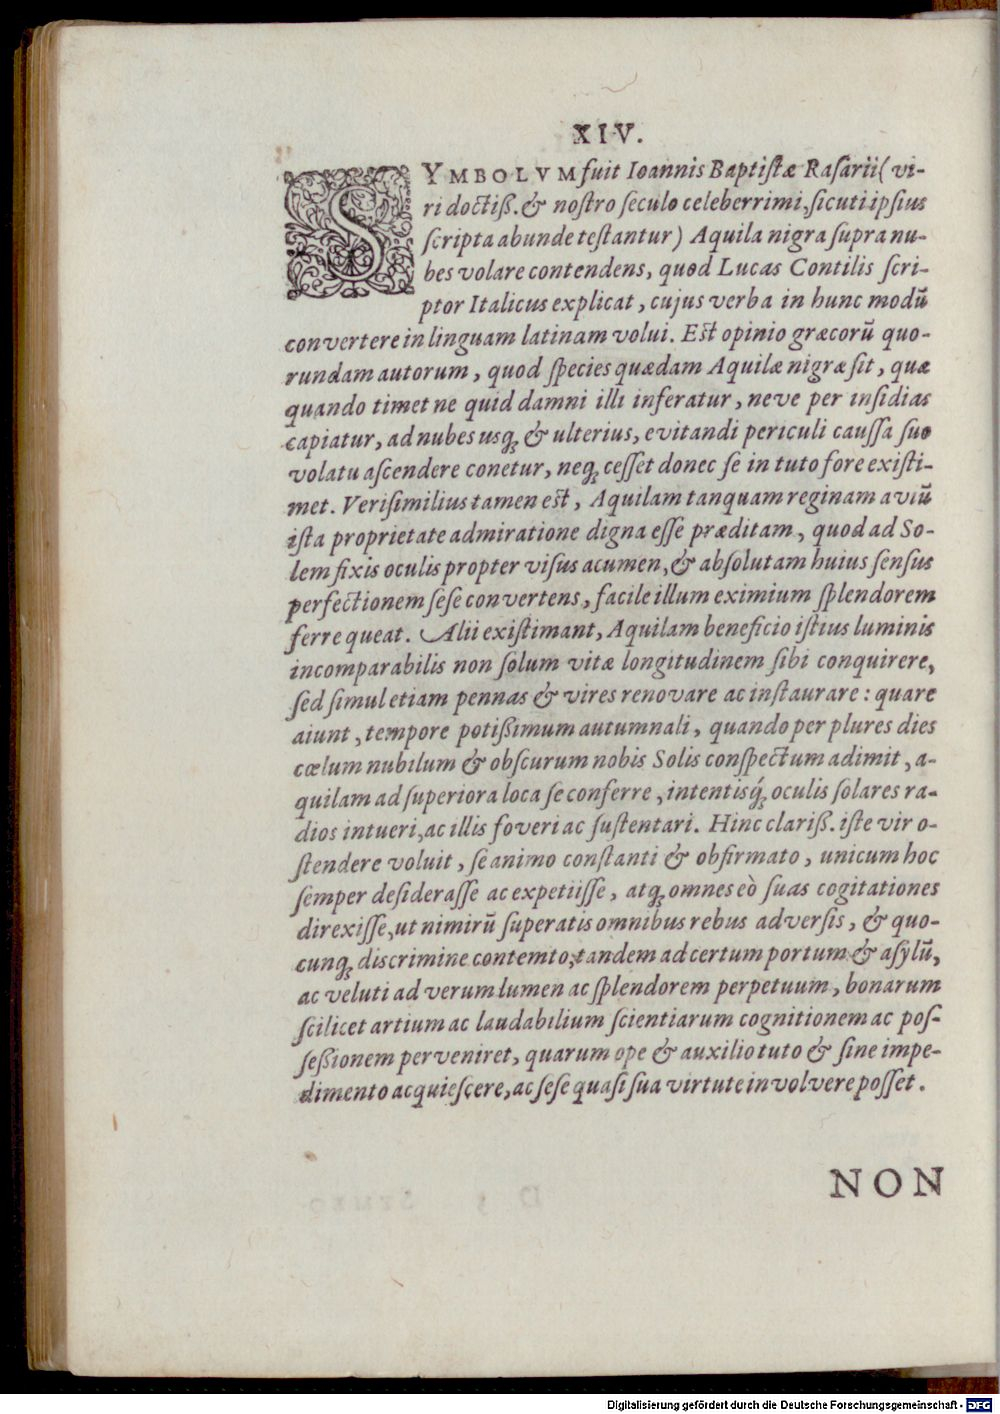 XIV.
SYMBOLVM fuit Ioannis Baptistæ Rasarii (vi-
ri doctiß. & nostro seculo celeberrimi, sicuti ipsius
scripta abunde testantur) Aquila nigra supra nu-
bes volare contendens, quod Lucas Contilis scri-
ptor Italicus explicat, cujus verba in hunc modũ
convertere in linguam latinam volui. Est opinio græcorũ quo-
rundam autorum, quod species quædam Aquilæ nigræ sit, quæ
quando timet ne quid damni illi inferatur, neve per insidias
capiatur, ad nubes usq; & ulterius, evitandi periculi caussa suo
volatu ascendere conetur, neq; cesset donec se in tuto fore existi-
met. Verisimilius tamen est, Aquilam tanquam reginam aviũ
ista proprietate admiratione digna esse præditam, quod ad So-
lem fixis oculis propter visus acumen, & absolutam huius sensus
perfectionem sese convertens, facile illum eximium splendorem
ferre queat. Alii existimant, Aquilam beneficio istius luminis
incomparabilis non solum vitæ longitudinem sibi conquirere,
sed simul etiam pennas & vires renovare ac instaurare: quare
aiunt, tempore potißimum autumnali, quando per plures dies
cœlum nubilum & obscurum nobis Solis conspectum adimit, a-
quilam ad superiora loca se conferre, intentisq́; oculis solares ra-
dios intueri, ac illis foveri ac sustentari. Hinc clariß. iste vir o-
stendere voluit, se animo constanti & obfirmato, unicum hoc
semper desiderasse ac expetiisse, atq; omnes eò suas cogitationes
direxisse, ut nimirũ superatis omnibus rebus adversis, & quo-
cunq; discrimine contemto, tandem ad certum portum & asylũ,
ac veluti ad verum lumen ac splendorem perpetuum, bonarum
scilicet artium ac laudabilium scientiarum cognitionem ac pos-
seßionem perveniret, quarum ope & auxilio tuto & sine impe-
dimento acquiescere, ac sese quasi sua virtute involvere posset.
NON
Digitalisierung gefördert durch die Deutsche Forschungsgemeinschaft - DFG